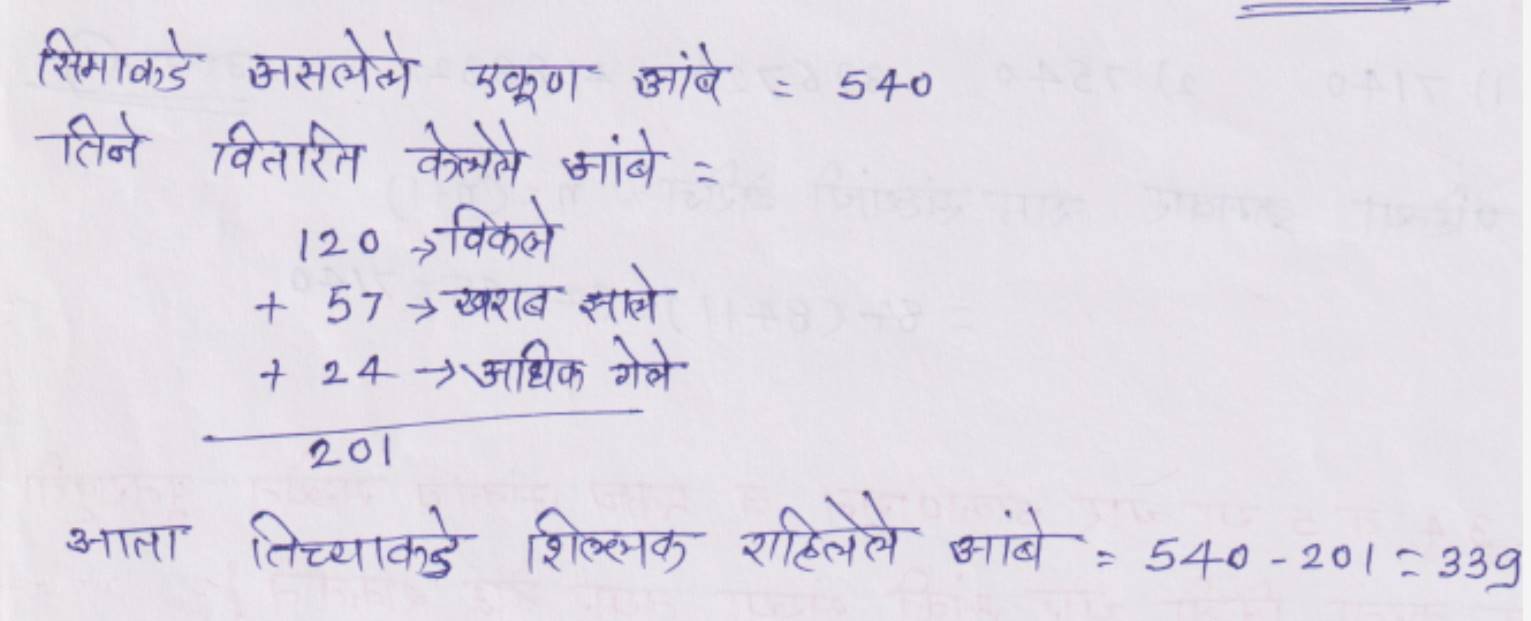 सिमाकडे असलेले एकूण आंबे = 540
तिने वितरित केलेले आंबे =
120 → विकले
+ 57 → खराब झाले
+ 24 → अधिक गेले
201
आता तिच्याकडे शिल्लक राहिलेले आंबे = 540 - 201 = 339